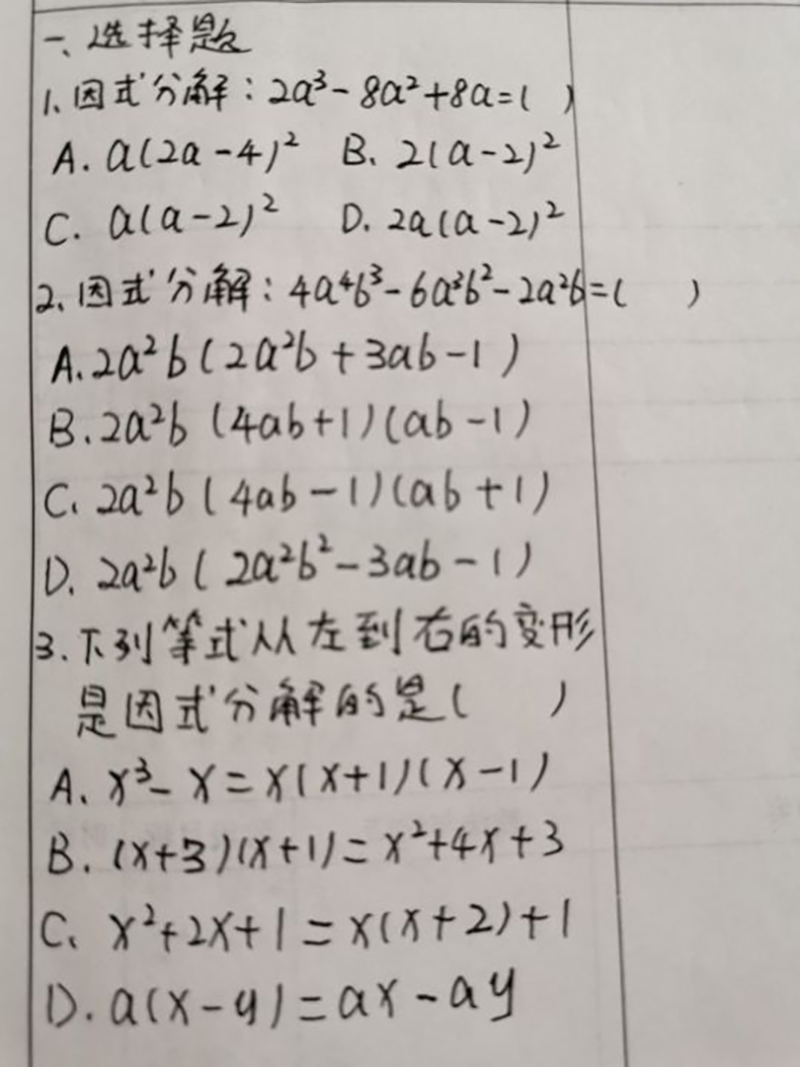 一、选择题
1、因式分解：2a³-8a²+8a=( )
A. a(2a-4)² B、2(a-2)²
C. a(a-2)² D. 2a(a-2)²
2、因式分解：4a⁴b³-6a³b²-2a²b=( )
A. 2a²b(2a²b+3ab-1)
B. 2a²b(4ab+1)(ab-1)
C、2a²b(4ab-1)(ab+1)
D. 2a²b(2a²b²-3ab-1)
3. 下列等式从左到右的变形
是因式分解的是( )
A、x³-x=x(x+1)(x-1)
B. (x+3)(x+1)=x²+4x+3
C、x²+2x+1=x(x+2)+1
D. a(x-y)=ax-ay